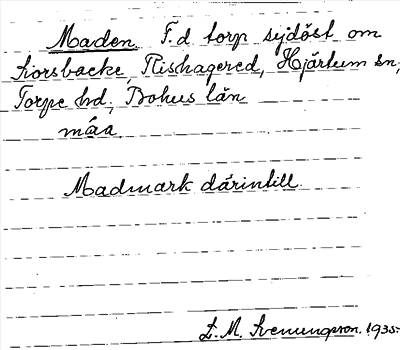 Maden. F.d torp sydöst om
Korsbacke, Rishagered, Hjärtum sn,
Torpe hd, Bohus län
máa
Madmark därintill.
L. M. Svenungsson. 1935.